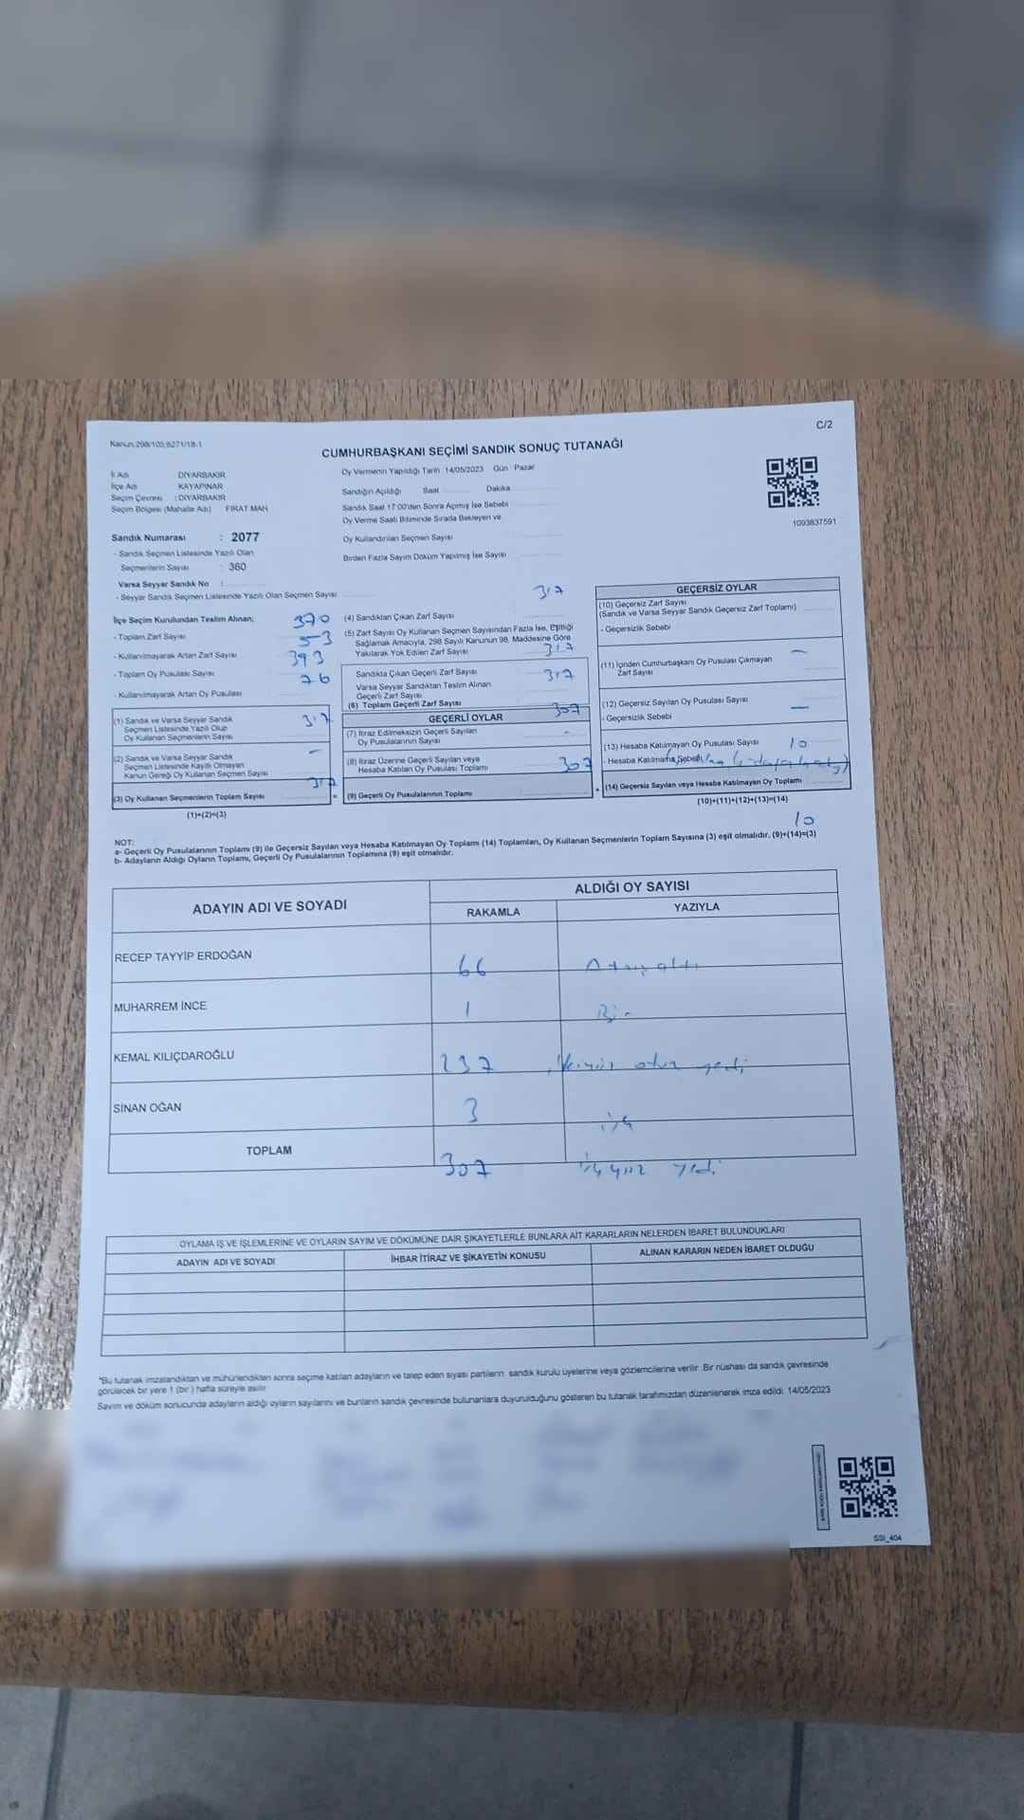 Kanun 298/105;6271/18-1
C/2
CUMHURBAŞKANI SEÇİMİ SANDIK SONUÇ TUTANAĞI
İl Adı DİYARBAKIR
İlçe Adı KAYAPINAR
Seçim Çevresi : DİYARBAKIR
Seçim Bölgesi (Mahalle Adı) FIRAT MAH
Oy Vermenin Yapıldığı Tarih 14/05/2023 Gün Pazar
Sandığın Açıldığı Saat Dakika
Sandık Saat 17:00'den Sonra Açılmış İse Sebebi
Oy Verme Saati Bitiminde Sırada Bekleyen ve
Oy Kullandırılan Seçmen Sayısı
Birden Fazla Sayım Döküm Yapılmış İse Sayısı
1093837591
Sandık Numarası : 2077
- Sandık Seçmen Listesinde Yazılı Olan
Seçmenlerin Sayısı : 360
Varsa Seyyar Sandık No :
- Seyyar Sandık Seçmen Listesinde Yazılı Olan Seçmen Sayısı
İlçe Seçim Kurulundan Teslim Alınan; 370
- Toplam Zarf Sayısı 53
- Kullanılmayarak Artan Zarf Sayısı 393
- Toplam Oy Pusulası Sayısı 76
- Kullanılmayarak Artan Oy Pusulası
(1) Sandık ve Varsa Seyyar Sandık
Seçmen Listesinde Yazılı Olup
Oy Kullanan Seçmenlerin Sayısı
317
(2) Sandık ve Varsa Seyyar Sandık
Seçmen Listesinde Kayıtlı Olmayan
Kanun Gereği Oy Kullanan Seçmen Sayısı
-
317
(3) Oy Kullanan Seçmenlerin Toplam Sayısı
(1)+(2)=(3)
317
(4) Sandıktan Çıkan Zarf Sayısı
(5) Zarf Sayısı Oy Kullanan Seçmen Sayısından Fazla İse, Eşitliği
Sağlamak Amacıyla, 298 Sayılı Kanunun 98. Maddesine Göre
Yakılarak Yok Edilen Zarf Sayısı
317
Sandıkta Çıkan Geçerli Zarf Sayısı 317
Varsa Seyyar Sandıktan Teslim Alınan
Geçerli Zarf Sayısı
(6) Toplam Geçerli Zarf Sayısı
307
GEÇERLİ OYLAR
(7) İtiraz Edilmeksizin Geçerli Sayılan
Oy Pusulalarının Sayısı
-
(8) İtiraz Üzerine Geçerli Sayılan veya
Hesaba Katılan Oy Pusulası Toplamı
307
(9) Geçerli Oy Pusulalarının Toplamı
GEÇERSİZ OYLAR
(10) Geçersiz Zarf Sayısı
(Sandık ve Varsa Seyyar Sandık Geçersiz Zarf Toplamı)
- Geçersizlik Sebebi
(11) İçinden Cumhurbaşkanı Oy Pusulası Çıkmayan
Zarf Sayısı
-
(12) Geçersiz Sayılan Oy Pusulası Sayısı
- Geçersizlik Sebebi
-
(13) Hesaba Katılmayan Oy Pusulası Sayısı 10
- Hesaba Katılmama Sebebi
(14) Geçersiz Sayılan veya Hesaba Katılmayan Oy Toplamı
(10)+(11)+(12)+(13)=(14)
10
NOT:
a- Geçerli Oy Pusulalarının Toplamı (9) ile Geçersiz Sayılan veya Hesaba Katılmayan Oy Toplamı (14) Toplamları, Oy Kullanan Seçmenlerin Toplam Sayısına (3) eşit olmalıdır. (9)+(14)=(3)
b- Adayların Aldığı Oyların Toplamı, Geçerli Oy Pusulalarının Toplamına (9) eşit olmalıdır.
ADAYIN ADI VE SOYADI
ALDIĞI OY SAYISI
RAKAMLA YAZIYLA
RECEP TAYYİP ERDOĞAN 66 Atmışaltı
MUHARREM İNCE 1 Bir
KEMAL KILIÇDAROĞLU 237 otuz yedi
SİNAN OĞAN 3 üç
TOPLAM 307 üçyüz yedi
OYLAMA İŞ VE İŞLEMLERİNE VE OYLARIN SAYIM VE DÖKÜMÜNE DAİR ŞİKAYETLERLE BUNLARA AİT KARARLARIN NELERDEN İBARET BULUNDUKLARI
ADAYIN ADI VE SOYADI İHBAR İTİRAZ VE ŞİKAYETİN KONUSU ALINAN KARARIN NEDEN İBARET OLDUĞU
"Bu tutanak imzalandıktan ve mühürlendikten sonra seçime katılan adayların ve talep eden siyasi partilerin sandık kurulu üyelerine veya gözlemcilerine verilir. Bir nüshası da sandık çevresinde
görülecek bir yere 1 (bir) hafta süreyle asılır.
Sayım ve döküm sonucunda adayların aldığı oyların sayılarını ve bunların sandık çevresinde bulunanlara duyurulduğunu gösteren bu tutanak tarafımızdan düzenlenerek imza edildi. 14/05/2023
SSI_404